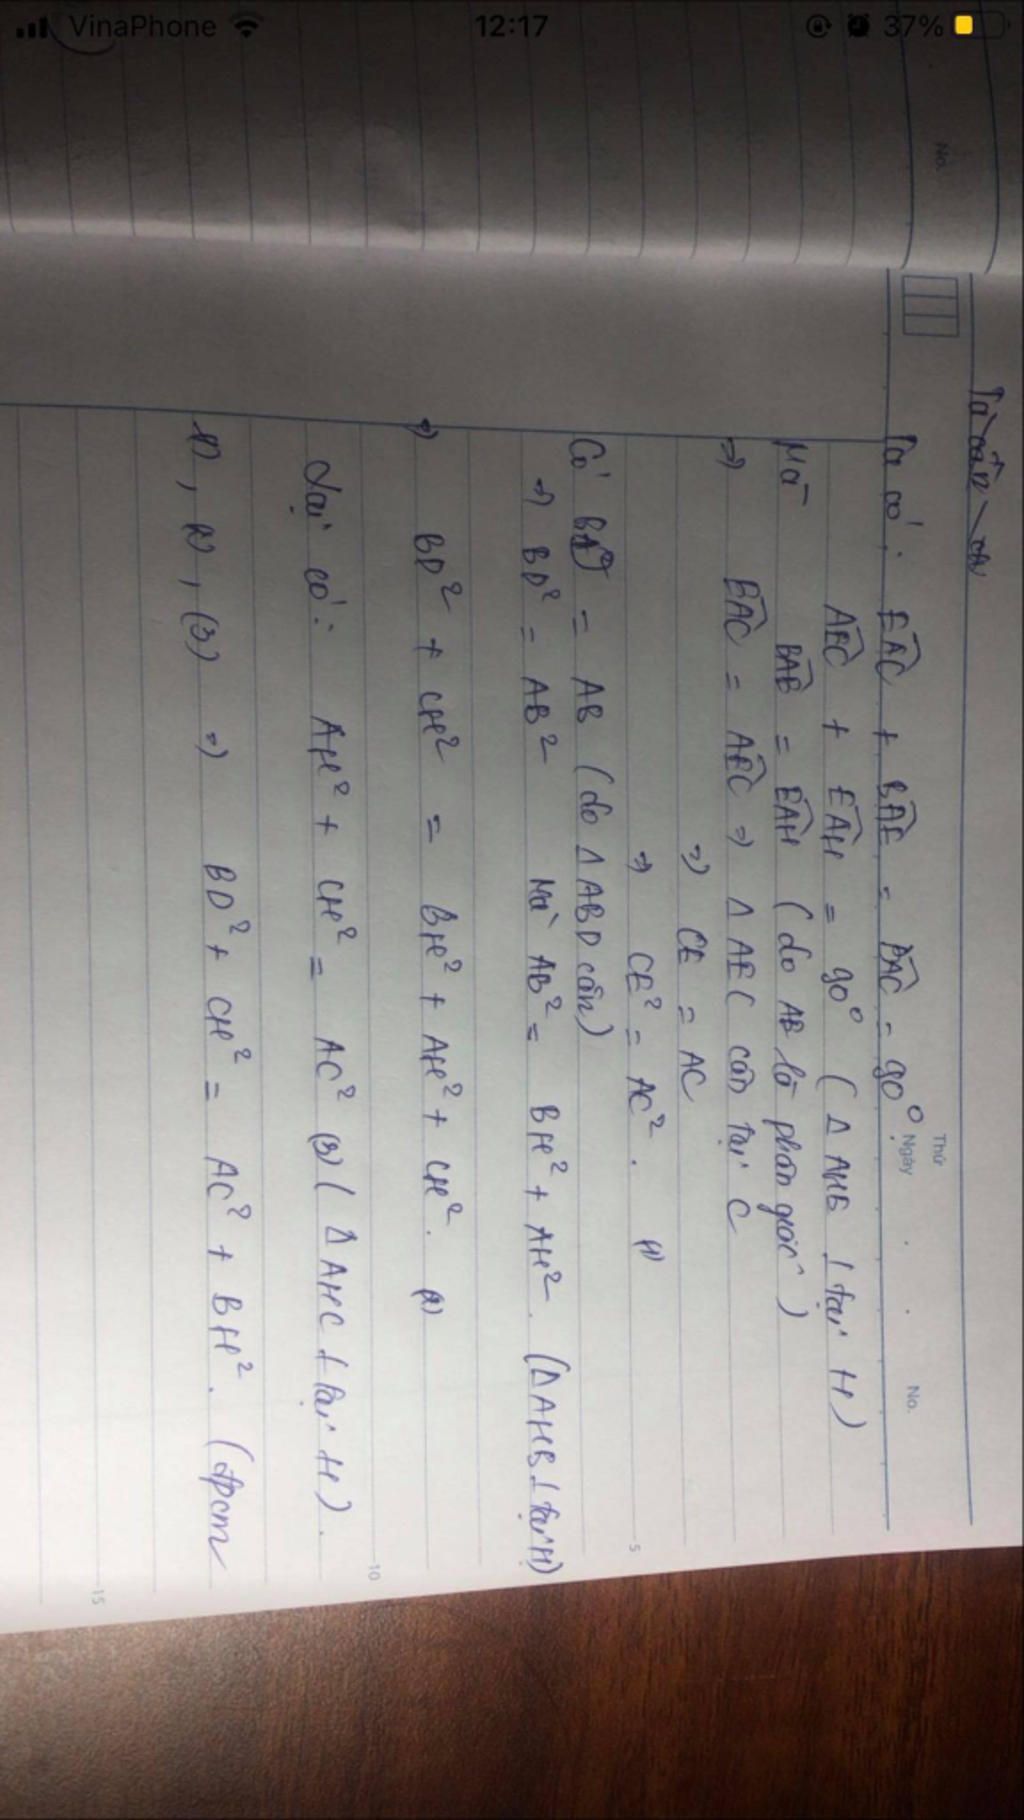 VinaPhone 12:17 37%
No.
Thứ
Ngày . . No.
Ta có: EAC + BAE = BAC = 90°
AEC + EAH = 90° (Δ AHE ⊥ tại H)
Mà BAE = EAH (do AE là phân giác)
=> EAC = AEC => Δ AEC cân tại C
=> CE = AC
=> CE² = AC². (1)
5
Có BD = AB (do Δ ABD cân)
=> BD² = AB² Mà AB² = BH² + AH². (Δ AHB ⊥ tại H)
=> BD² + CH² = BH² + AH² + CH². (2)
10
Lại có: AH² + CH² = AC² (3) (Δ AHC ⊥ tại H).
(1), (2), (3) => BD² + CH² = AC² + BH². (đpcm
15